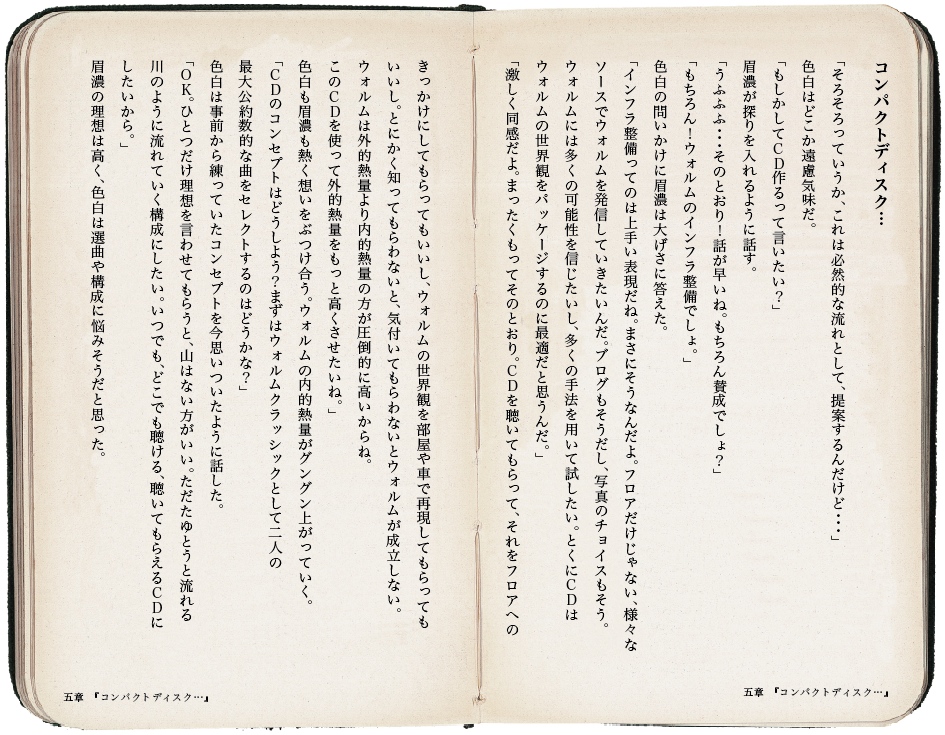 コンパクトディスク…
「そろそろっていうか、これは必然的な流れとして、提案するんだけど・・・・」
色白はどこか遠慮気味だ。
「もしかしてCD作るって言いたい？」
眉濃が探りを入れるように話す。
「うふふふ・・・そのとおり！話が早いね。もちろん賛成でしょ？」
「もちろん！ウォルムのインフラ整備でしょ。」
色白の問いかけに眉濃は大げさに答えた。
「インフラ整備ってのは上手い表現だね。まさにそうなんだよ。フロアだけじゃない、様々な
ソースでウォルムを発信していきたいんだ。ブログもそうだし、写真のチョイスもそう。
ウォルムには多くの可能性を信じたいし、多くの手法を用いて試したい。とくにCDは
ウォルムの世界観をパッケージするのに最適だと思うんだ。」
「激しく同感だよ。まったくもってそのとおり。CDを聴いてもらって、それをフロアへの
五章 『コンパクトディスク…』
きっかけにしてもらってもいいし、ウォルムの世界観を部屋や車で再現してもらっても
いいし。とにかく知ってもらわないと、気付いてもらわないとウォルムが成立しない。
ウォルムは外的熱量より内的熱量の方が圧倒的に高いからね。
このCDを使って外的熱量をもっと高くさせたいね。」
色白も眉濃も熱く想いをぶつけ合う。ウォルムの内的熱量がグングン上がっていく。
「CDのコンセプトはどうしよう？まずはウォルムクラッシックとして二人の
最大公約数的な曲をセレクトするのはどうかな？」
色白は事前から練っていたコンセプトを今思いついたように話した。
「OK。ひとつだけ理想を言わせてもらうと、山はない方がいい。ただたゆとうと流れる
川のように流れていく構成にしたい。いつでも、どこでも聴ける、聴いてもらえるCDに
したいから。」
眉濃の理想は高く、色白は選曲や構成に悩みそうだと思った。
五章 『コンパクトディスク…』